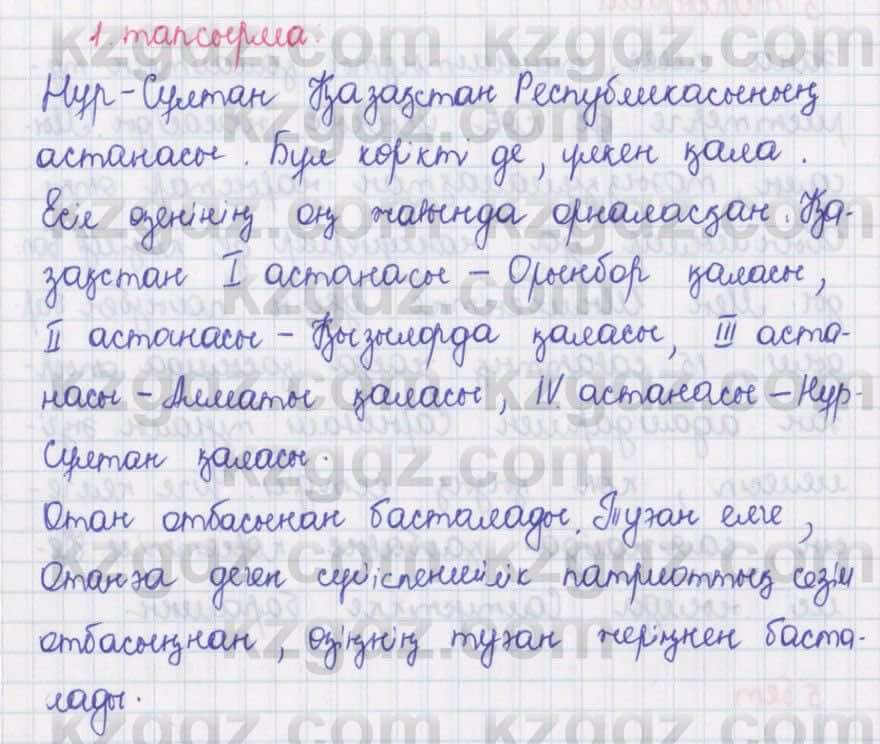 1 тапсырма.
Нұр-Сұлтан Қазақстан Республикасының
астанасы. Бұл көрікті де, үлкен қала.
Есіл өзенінің оң жағында орналасқан. Қа-
зақстан I астанасы – Орынбор қаласы,
II астанасы – Қызылорда қаласы, III аста-
насы – Алматы қаласы, IV астанасы – Нұр-
Сұлтан қаласы.
Отан отбасынан басталады. Туған елге,
Отанға деген сүйіспеншілік патриоттық сезім
отбасыңнан, өзіңнің туған жеріңнен баста-
лады.
kzgdz.com